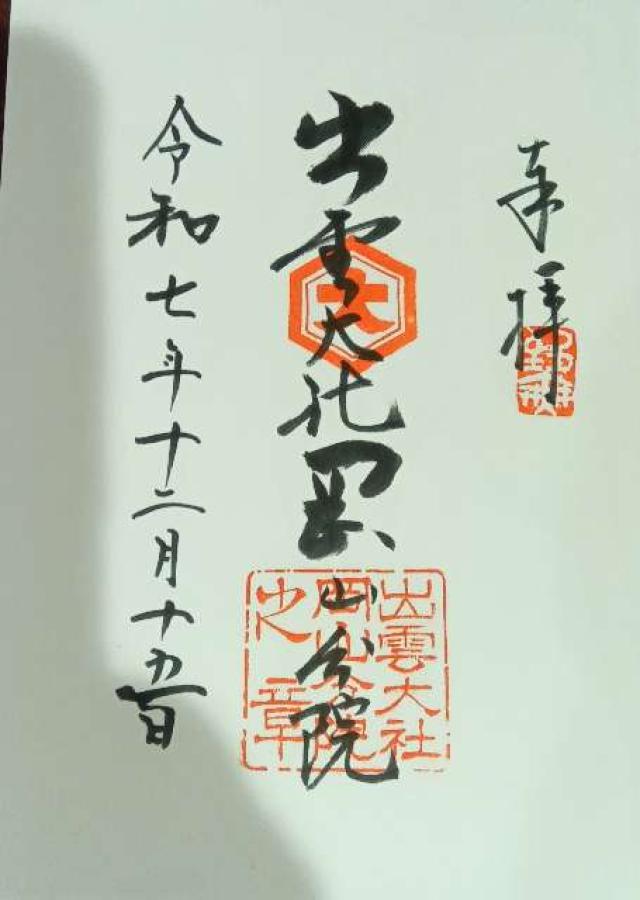 奉拝
出雲大社岡山分院
大
出雲大社
岡山分院
之章
令和七年十二月十九日